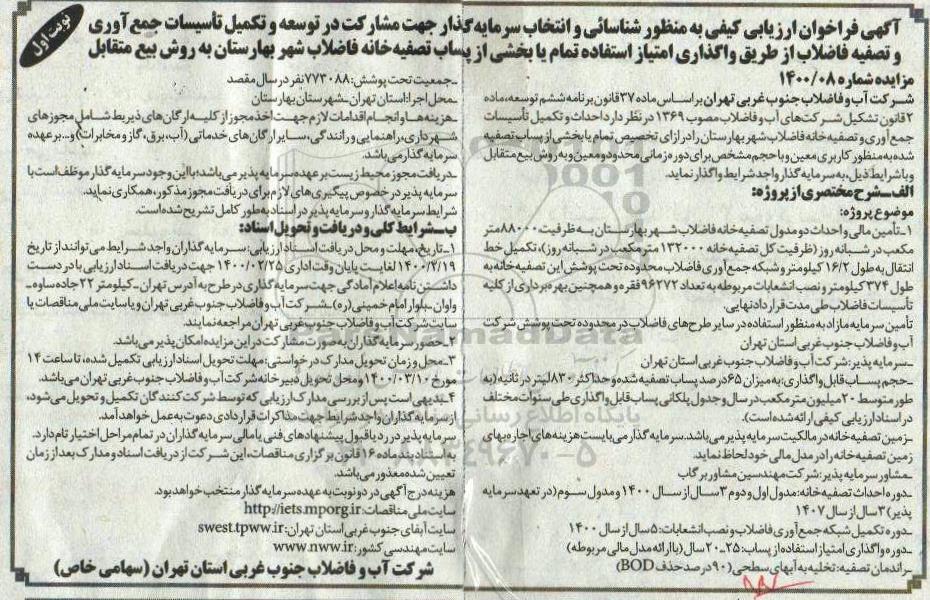 نوبت اول
آگهی فراخوان ارزیابی کیفی به منظور شناسائی و انتخاب سرمایه گذار جهت مشارکت در توسعه و تکمیل تأسیسات جمع آوری
و تصفیه فاضلاب از طریق واگذاری امتیاز استفاده تمام یا بخشی از پساب تصفیه خانه فاضلاب شهر بهارستان به روش بیع متقابل
مزایده شماره ۱۴۰۰/۰۸
شرکت آب و فاضلاب جنوب غربی تهران براساس ماده ۳۷ قانون برنامه ششم توسعه، ماده
۲ قانون تشکیل شرکت های آب و فاضلاب مصوب ۱۳۶۹ در نظر دارد احداث و تکمیل تأسیسات
جمع آوری و تصفیه خانه فاضلاب شهر بهارستان را در ازای تخصیص تمام یا بخشی از پساب تصفیه
شده به منظور کاربری معین و با حجم مشخص برای دوره زمانی محدود و معین و به روش بیع متقابل
و با شرایط ذیل، به سرمایه گذار واجد شرایط واگذار نماید.
الف_شرح مختصری از پروژه:
موضوع پروژه:
۱_تأمین مالی و احداث دو مدول تصفیه خانه فاضلاب شهر بهارستان به ظرفیت ۸۸۰۰۰ متر
مکعب در شبانه روز (ظرفیت کل تصفیه خانه ۱۳۲۰۰۰ متر مکعب در شبانه روز)، تکمیل خط
انتقال به طول ۱۶/۲ کیلومتر و شبکه جمع آوری فاضلاب محدوده تحت پوشش این تصفیه خانه به
طول ۳۷۴ کیلومتر و نصب انشعابات مربوطه به تعداد ۹۶۲۷۲ فقره و همچنین بهره برداری از کلیه
تأسیسات فاضلاب طی مدت قرارداد نهایی.
تأمین سرمایه مازاد به منظور استفاده در سایر طرح های فاضلاب در محدوده تحت پوشش شرکت
آب و فاضلاب جنوب غربی استان تهران
_سرمایه پذیر: شرکت آب و فاضلاب جنوب غربی استان تهران
_حجم پساب قابل واگذاری: به میزان ۶۵ درصد پساب تصفیه شده و حداکثر ۸۳۰ لیتر در ثانیه (به
طور متوسط ۲۰ میلیون متر مکعب در سال و جدول پلکانی پساب قابل واگذاری طی سنوات مختلف
در اسناد ارزیابی کیفی ارائه شده است).
_زمین تصفیه خانه در مالکیت سرمایه پذیر می باشد. سرمایه گذار می بایست هزینه های اجاره بهای
زمین تصفیه خانه را در مدل مالی خود لحاظ نماید.
_مشاور سرمایه پذیر: شرکت مهندسین مشاور پرگاب
_دوره احداث تصفیه خانه: مدول اول و دوم ۳ سال از سال ۱۴۰۰ و مدول سوم (در تعهد سرمایه
پذیر) ۳ سال از سال ۱۴۰۷
_دوره تکمیل شبکه جمع آوری فاضلاب و نصب انشعابات: ۵ سال از سال ۱۴۰۰
_دوره واگذاری امتیاز استفاده از پساب: ۲۵_۲۰ سال (با ارائه مدل مالی مربوطه)
_راندمان تصفیه: تخلیه به آبهای سطحی (۹۰ درصد حذف BOD)
_جمعیت تحت پوشش: ۷۷۳۰۸۸ نفر در سال مقصد
_محل اجرا: استان تهران_شهرستان بهارستان
_هزینه ها و انجام اقدامات لازم جهت اخذ مجوز از کلیه ارگان های ذیربط شامل مجوزهای
شهرداری، راهنمایی و رانندگی، سایر ارگان های خدماتی (آب، برق، گاز و مخابرات) و... برعهده
سرمایه گذار می باشد.
_دریافت مجوز محیط زیست برعهده سرمایه پذیر می باشد؛ با این وجود سرمایه گذار موظف است با
سرمایه پذیر در خصوص پیگیری های لازم برای دریافت مجوز مذکور، همکاری نماید.
شرایط سرمایه گذار و سرمایه پذیر در اسناد به طور کامل تشریح شده است.
ب_شرایط کلی و دریافت و تحویل اسناد:
۱_تاریخ، مهلت و محل دریافت اسناد ارزیابی: سرمایه گذاران واجد شرایط می توانند از تاریخ
۱۴۰۰/۲/۱۹ لغایت پایان وقت اداری ۱۴۰۰/۰۲/۲۵ جهت دریافت اسناد ارزیابی با در دست
داشتن نامه اعلام آمادگی جهت سرمایه گذاری در طرح به آدرس تهران_کیلومتر ۲۲ جاده ساوه_
واوان_بلوار امام خمینی (ره)_شرکت آب و فاضلاب جنوب غربی تهران و یا سایت ملی مناقصات یا
سایت شرکت آب و فاضلاب جنوب غربی تهران مراجعه نمایند.
۲_حضور سرمایه گذاران به صورت مشارکت در این مزایده امکان پذیر می باشد.
۳_محل و زمان تحویل مدارک درخواستی: مهلت تحویل اسناد ارزیابی تکمیل شده، تا ساعت ۱۴
مورخ ۱۴۰۰/۰۳/۱۰ و محل تحویل دبیرخانه شرکت آب و فاضلاب جنوب غربی تهران می باشد.
۴_بدیهی است پس از بررسی مدارک ارزیابی که توسط شرکت کنندگان تکمیل و تحویل می شود،
از سرمایه گذاران واجد شرایط جهت مذاکرات قراردادی دعوت به عمل خواهد آمد.
سرمایه پذیر در رد یا قبول پیشنهادهای فنی یا مالی سرمایه گذاران در تمام مراحل اختیار تام دارد.
به استناد بند ماده ۱۶ قانون برگزاری مناقصات، این شرکت از دریافت اسناد و مدارک بعد از زمان
تعیین شده معذور می باشد.
هزینه درج آگهی در دو نوبت به عهده سرمایه گذار منتخب خواهد بود.
سایت ملی مناقصات: http://iets.mporg.ir
سایت آبفای جنوب غربی استان تهران: swest.tpww.ir
سایت مهندسی کشور: www.nww.ir
شرکت آب و فاضلاب جنوب غربی استان تهران (سهامی خاص)